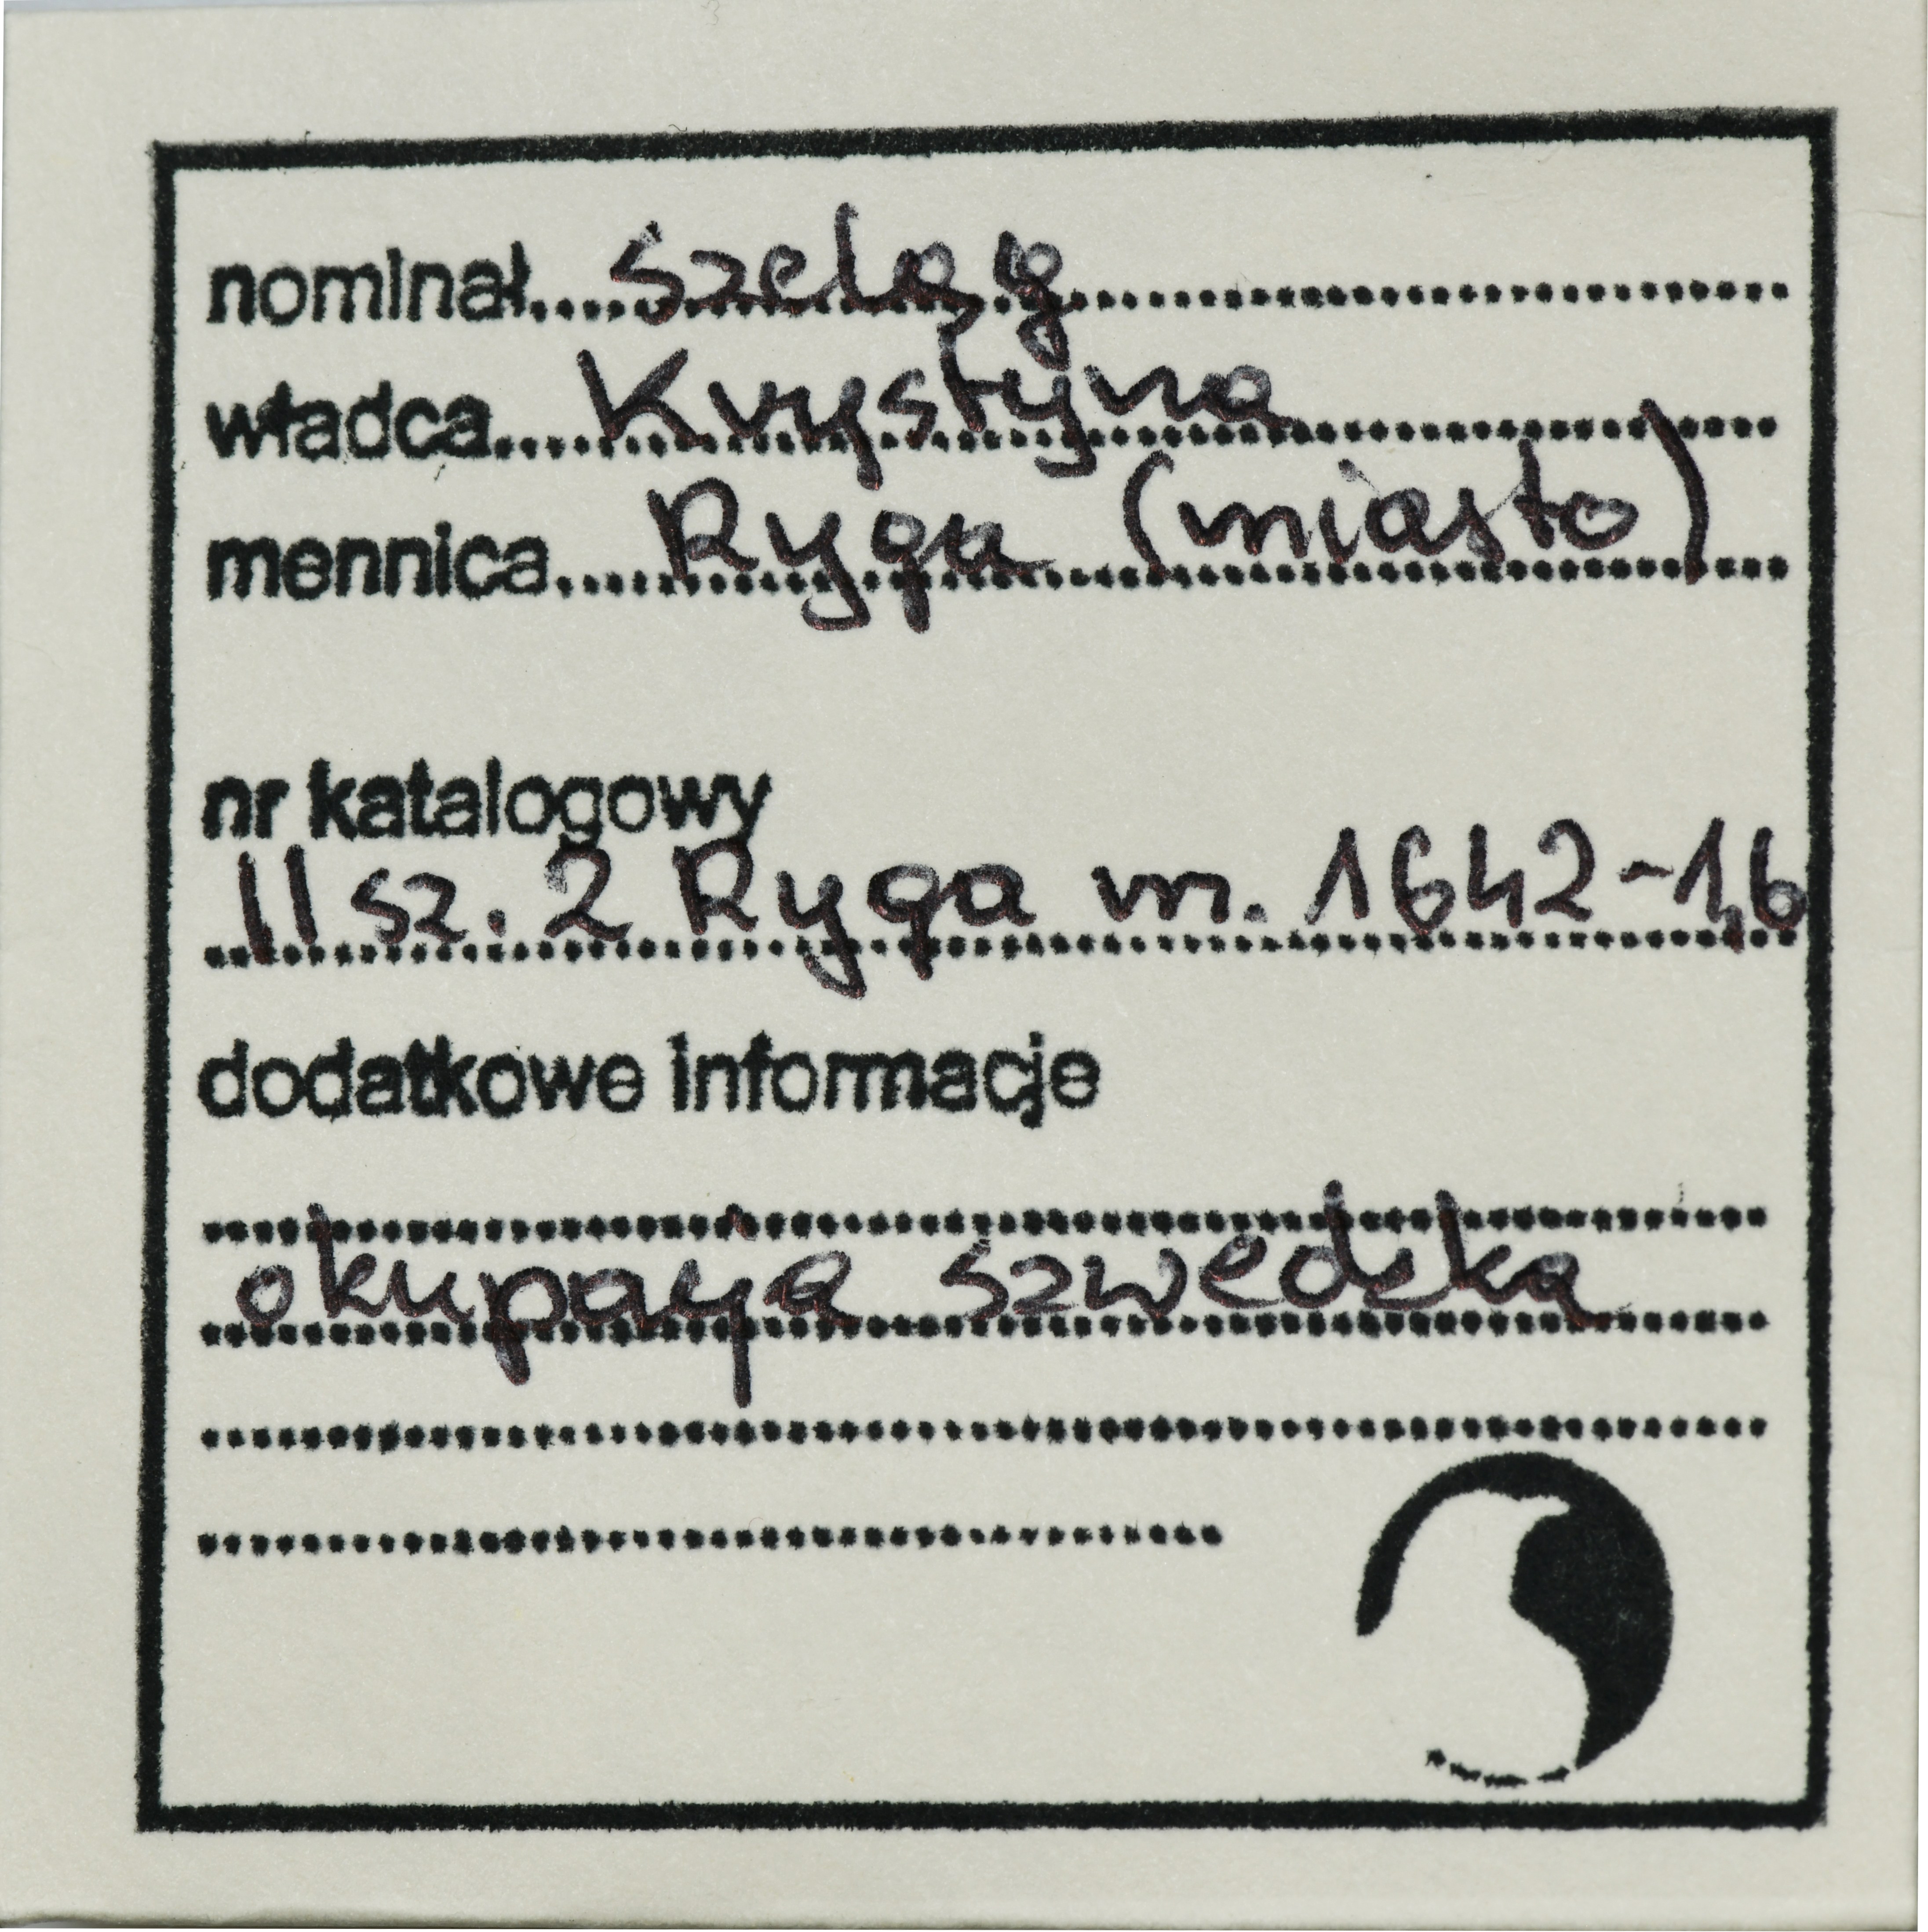 nominał.... szeląg
władca.... Krystyna
mennica.... Ryga (miasto)
nr katalogowy
II sz. 2 Ryga m. 1642-1,6
dodatkowe informacje
okupacja szwedzka